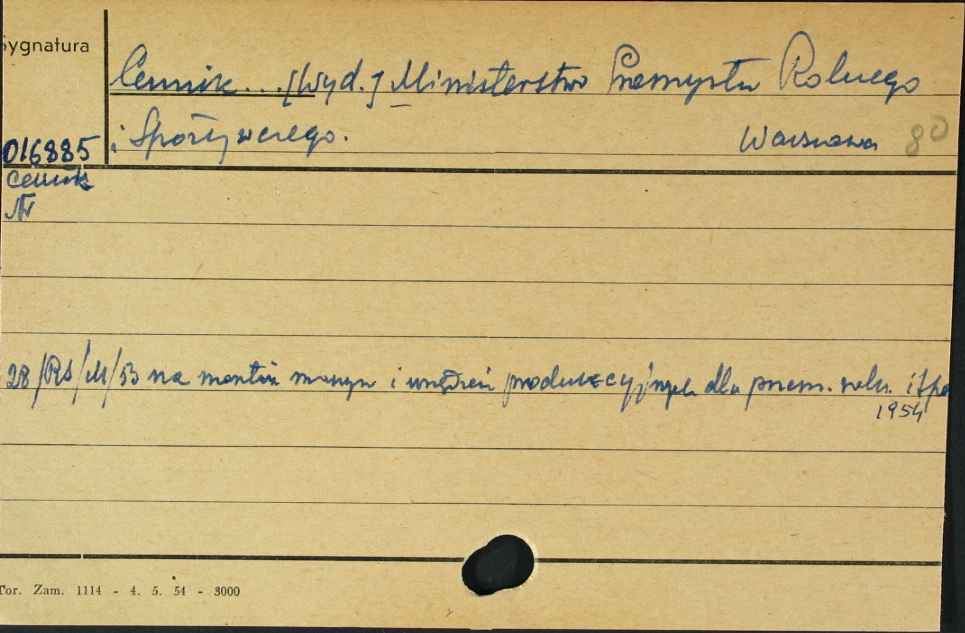 Sygnatura
Cennik... [Wyd.] Ministerstwo Przemysłu Rolnego
i Spożywczego. Warszawa 80
016885
Cennik
Nr
28/RS/M/53 na montaż maszyn i urządzeń produkcyjnych dla przem. roln. i spo
1954
Tor. Zam. 1114 - 4. 5. 54 - 3000